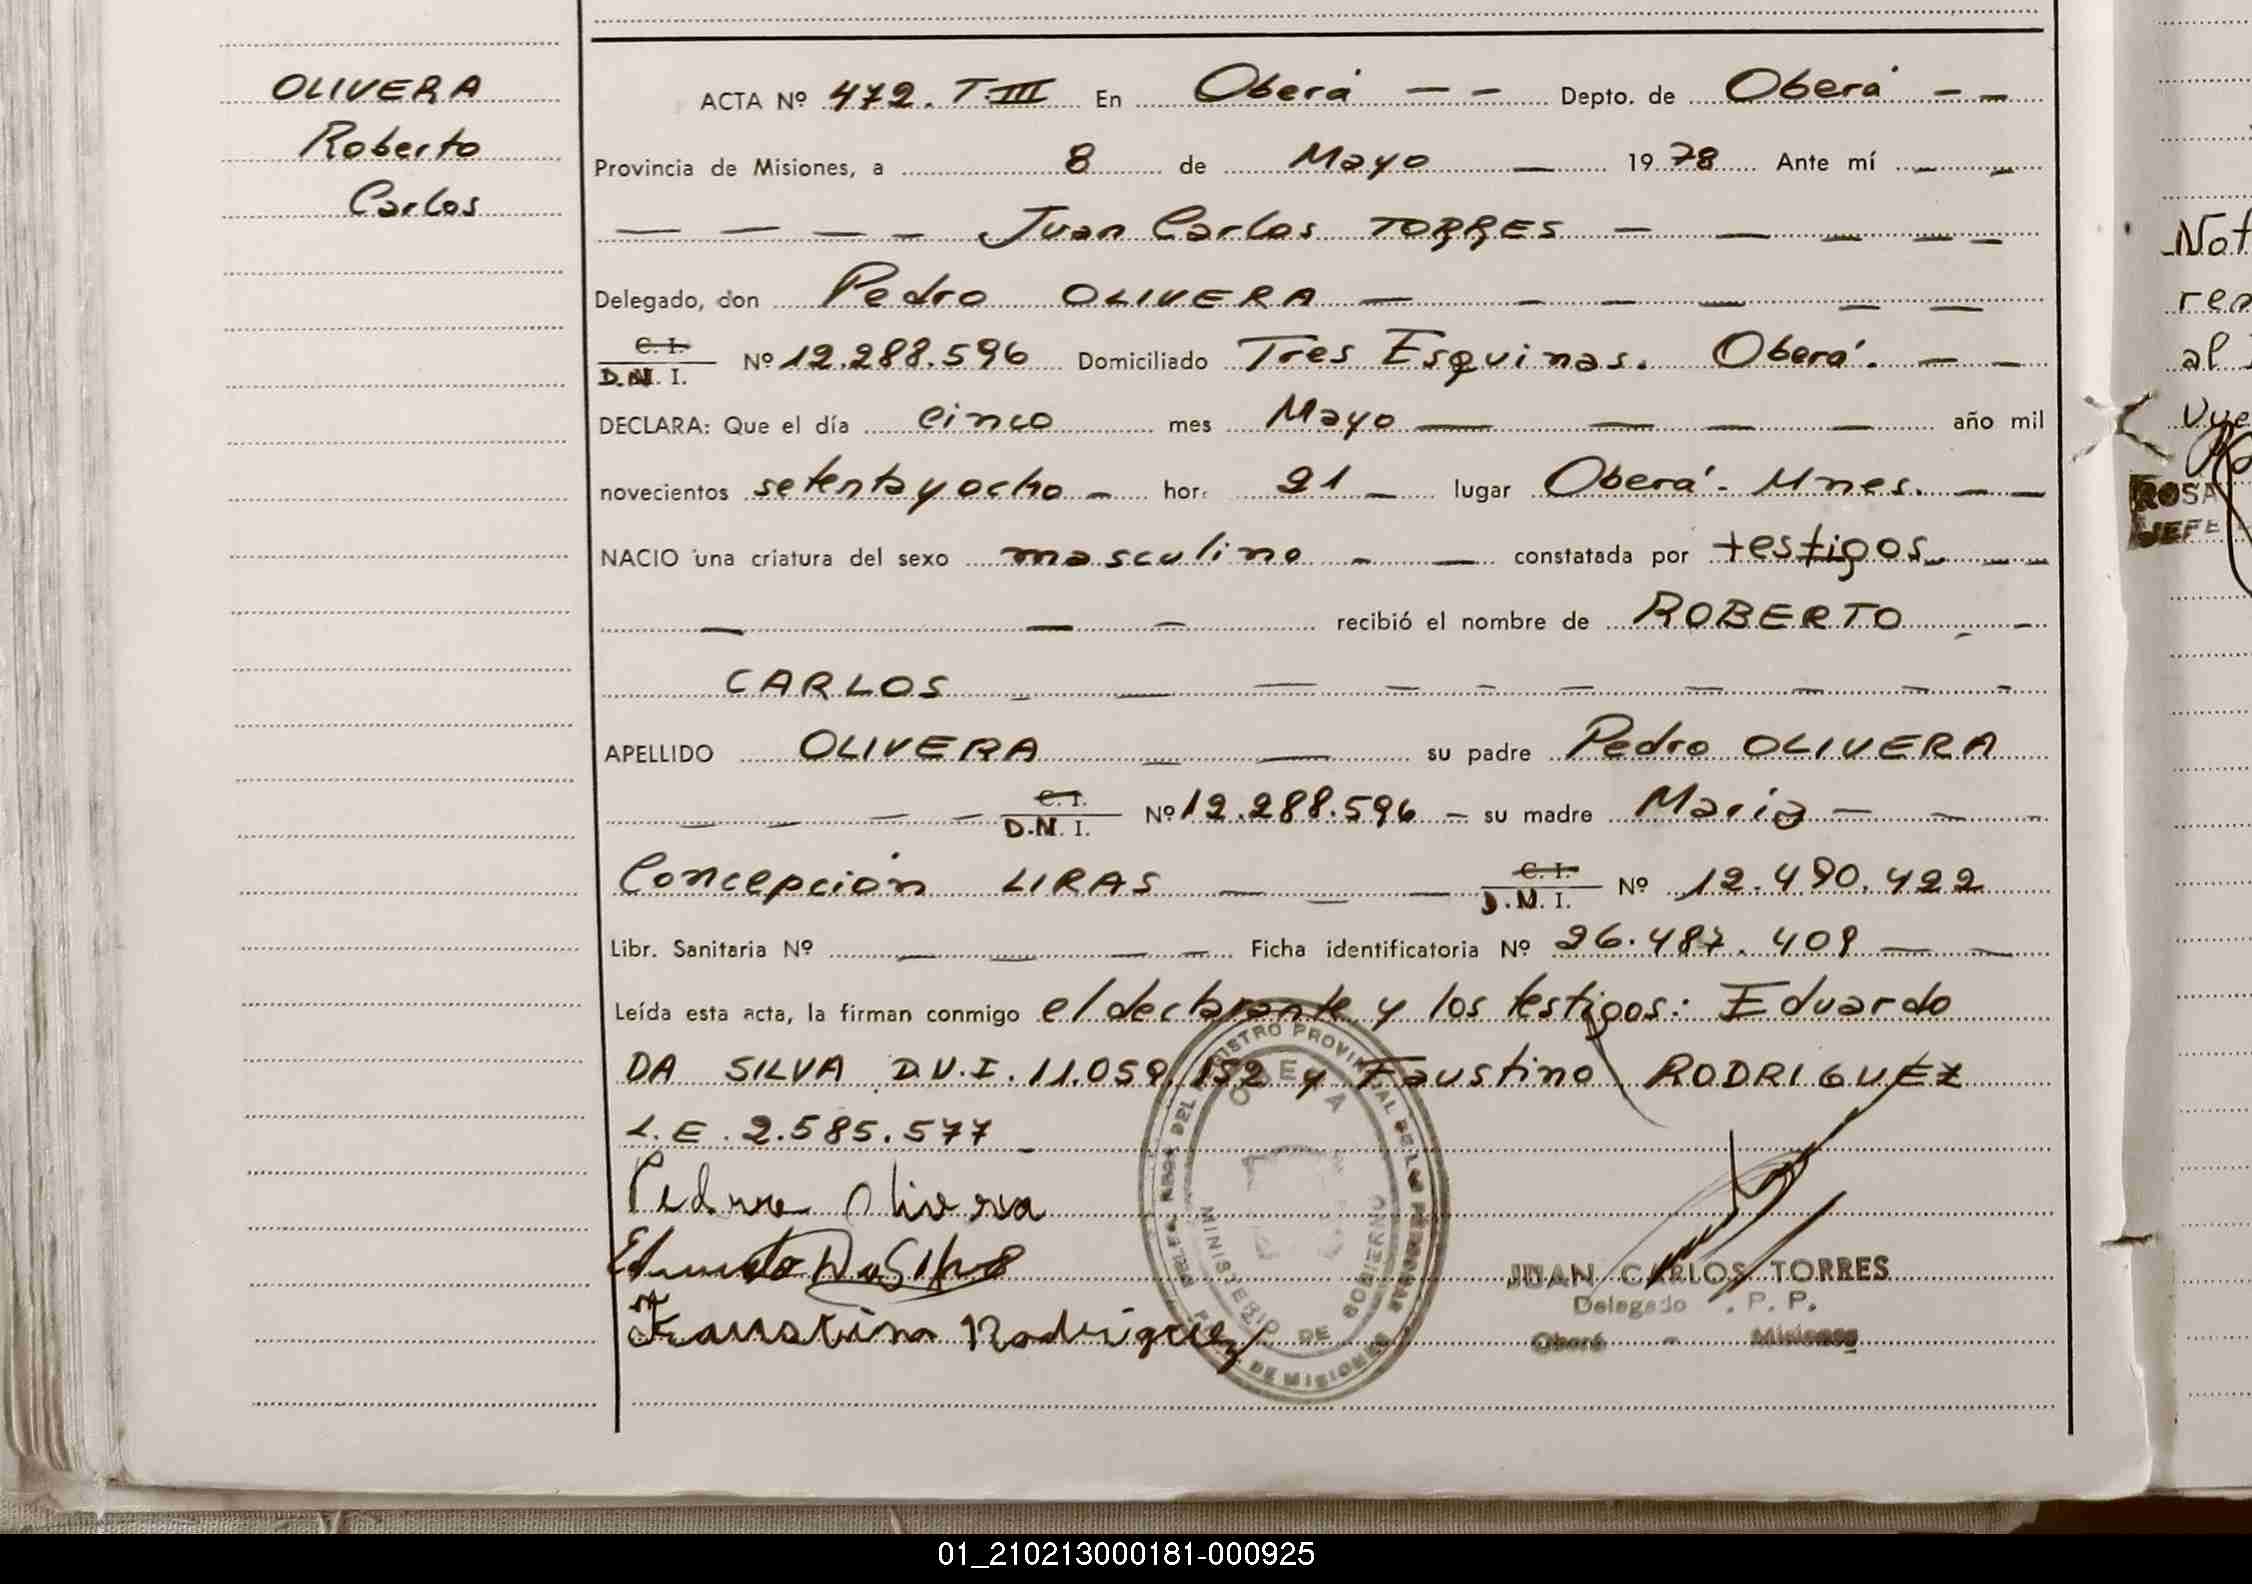 OLIVERA
Roberto
Carlos
ACTA Nº 472. T.III En Oberá — — Depto. de Oberá — —
Provincia de Misiones, a 8 de Mayo — 1978 Ante mí — —
— — — — Juan Carlos TORRES — — — — —
Delegado, don Pedro OLIVERA — — — — — —
C. I.
D.N. I. Nº 12.288.596 Domiciliado Tres Esquinas. Oberá. — —
DECLARA: Que el día cinco mes Mayo — — — — año mil
novecientos setenta y ocho — hor: 21 — lugar Oberá - Mnes. — —
NACIO una criatura del sexo masculino — — constatada por testigos. — —
— — — recibió el nombre de ROBERTO — —
CARLOS — — — — — — — — — —
APELLIDO OLIVERA — — su padre Pedro OLIVERA
— — — — C. I.
D.N. I. Nº 12.288.596 — su madre Maria — — —
Concepción LIRAS — — — C. I.
D.N. I. Nº 12.490.422
Libr. Sanitaria Nº — — — — Ficha identificatoria Nº 26.487.409 — —
Leída esta acta, la firman conmigo el declarante y los testigos: Eduardo
DA SILVA D.N.I. 11.059.152 y Faustino RODRIGUEZ
L.E. 2.585.577 —
Pedro Olivera
Eduardo Da Silva
Faustino Rodriguez
REGISTRO PROVINCIAL DE LAS PERSONAS
OBERA
MINISTERIO DE GOBIERNO
DE MISIONES
JUAN CARLOS TORRES
Delegado P. P.
Oberá - Misiones
Not
ren
al
Vue
ROSA
JEFE
01_210213000181-000925